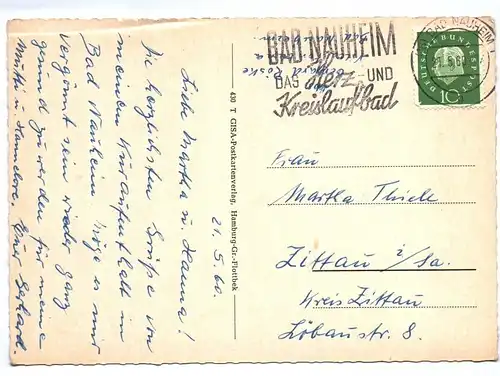 21.5.60.
Liebe Martha u. Hanna!
Die herzlichsten Grüße von
meinem Kuraufenthalt in
Bad Nauheim. Möge es mir
vergönnt sein wieder ganz
gesund zu werden für meine
Mutti u. Hannelore. Euer Gerhard.
430 T GISA-Postkartenverlag, Hamburg-Gr.-Flottbek
BAD NAUHEIM
DAS Herz- UND
Kreislaufbad
BAD NAUHEIM
DEUTSCHE BUNDESPOST
10
Frau
Martha Thiele
Zittau i/Sa.
Kreis Zittau
Löbaustr. 8.